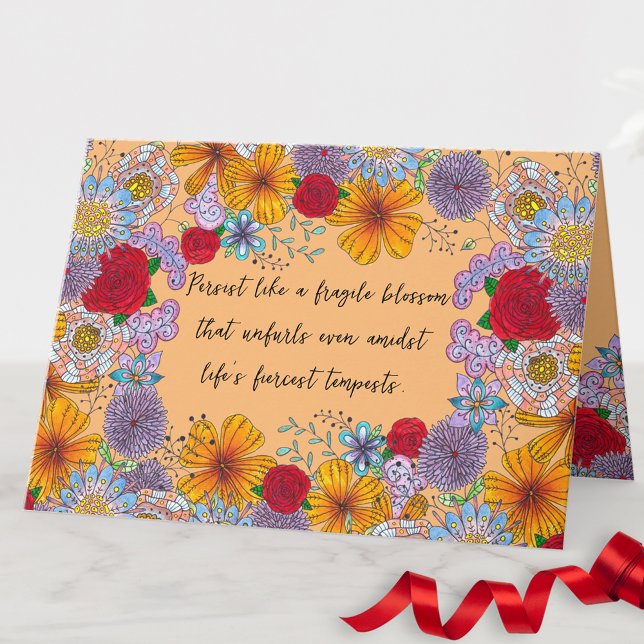 Persist like a fragile blossom
that unfurls even amidst
life's fiercest tempests.